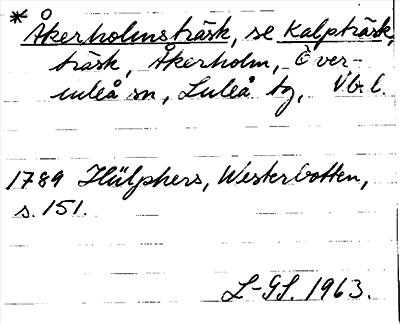 * Åkerholmsträsk, se Kalpträsk,
träsk, Åkerholm, Över-
luleå sn, Luleå tg, Vb. l.
1789 Hülphers, Westerbotten,
s. 151.
L-GS. 1963.